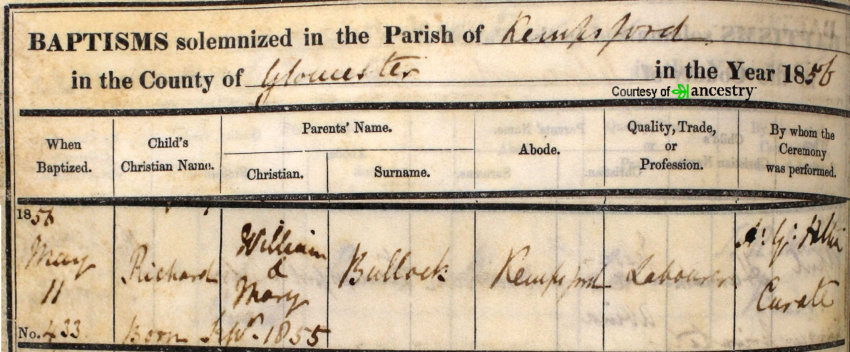 BAPTISMS solemnized in the Parish of Kempsford
in the County of Gloucester in the Year 1856
Courtesy of ancestry
When Baptized.
Child's Christian Name.
Parents' Name.
Christian.
Surname.
Abode.
Quality, Trade, or Profession.
By whom the Ceremony was performed.
1856
May
11
No. 433
Richard
Born Sepr. 1855
William
&
Mary
Bullock
Kempsford
Labourer
Curate